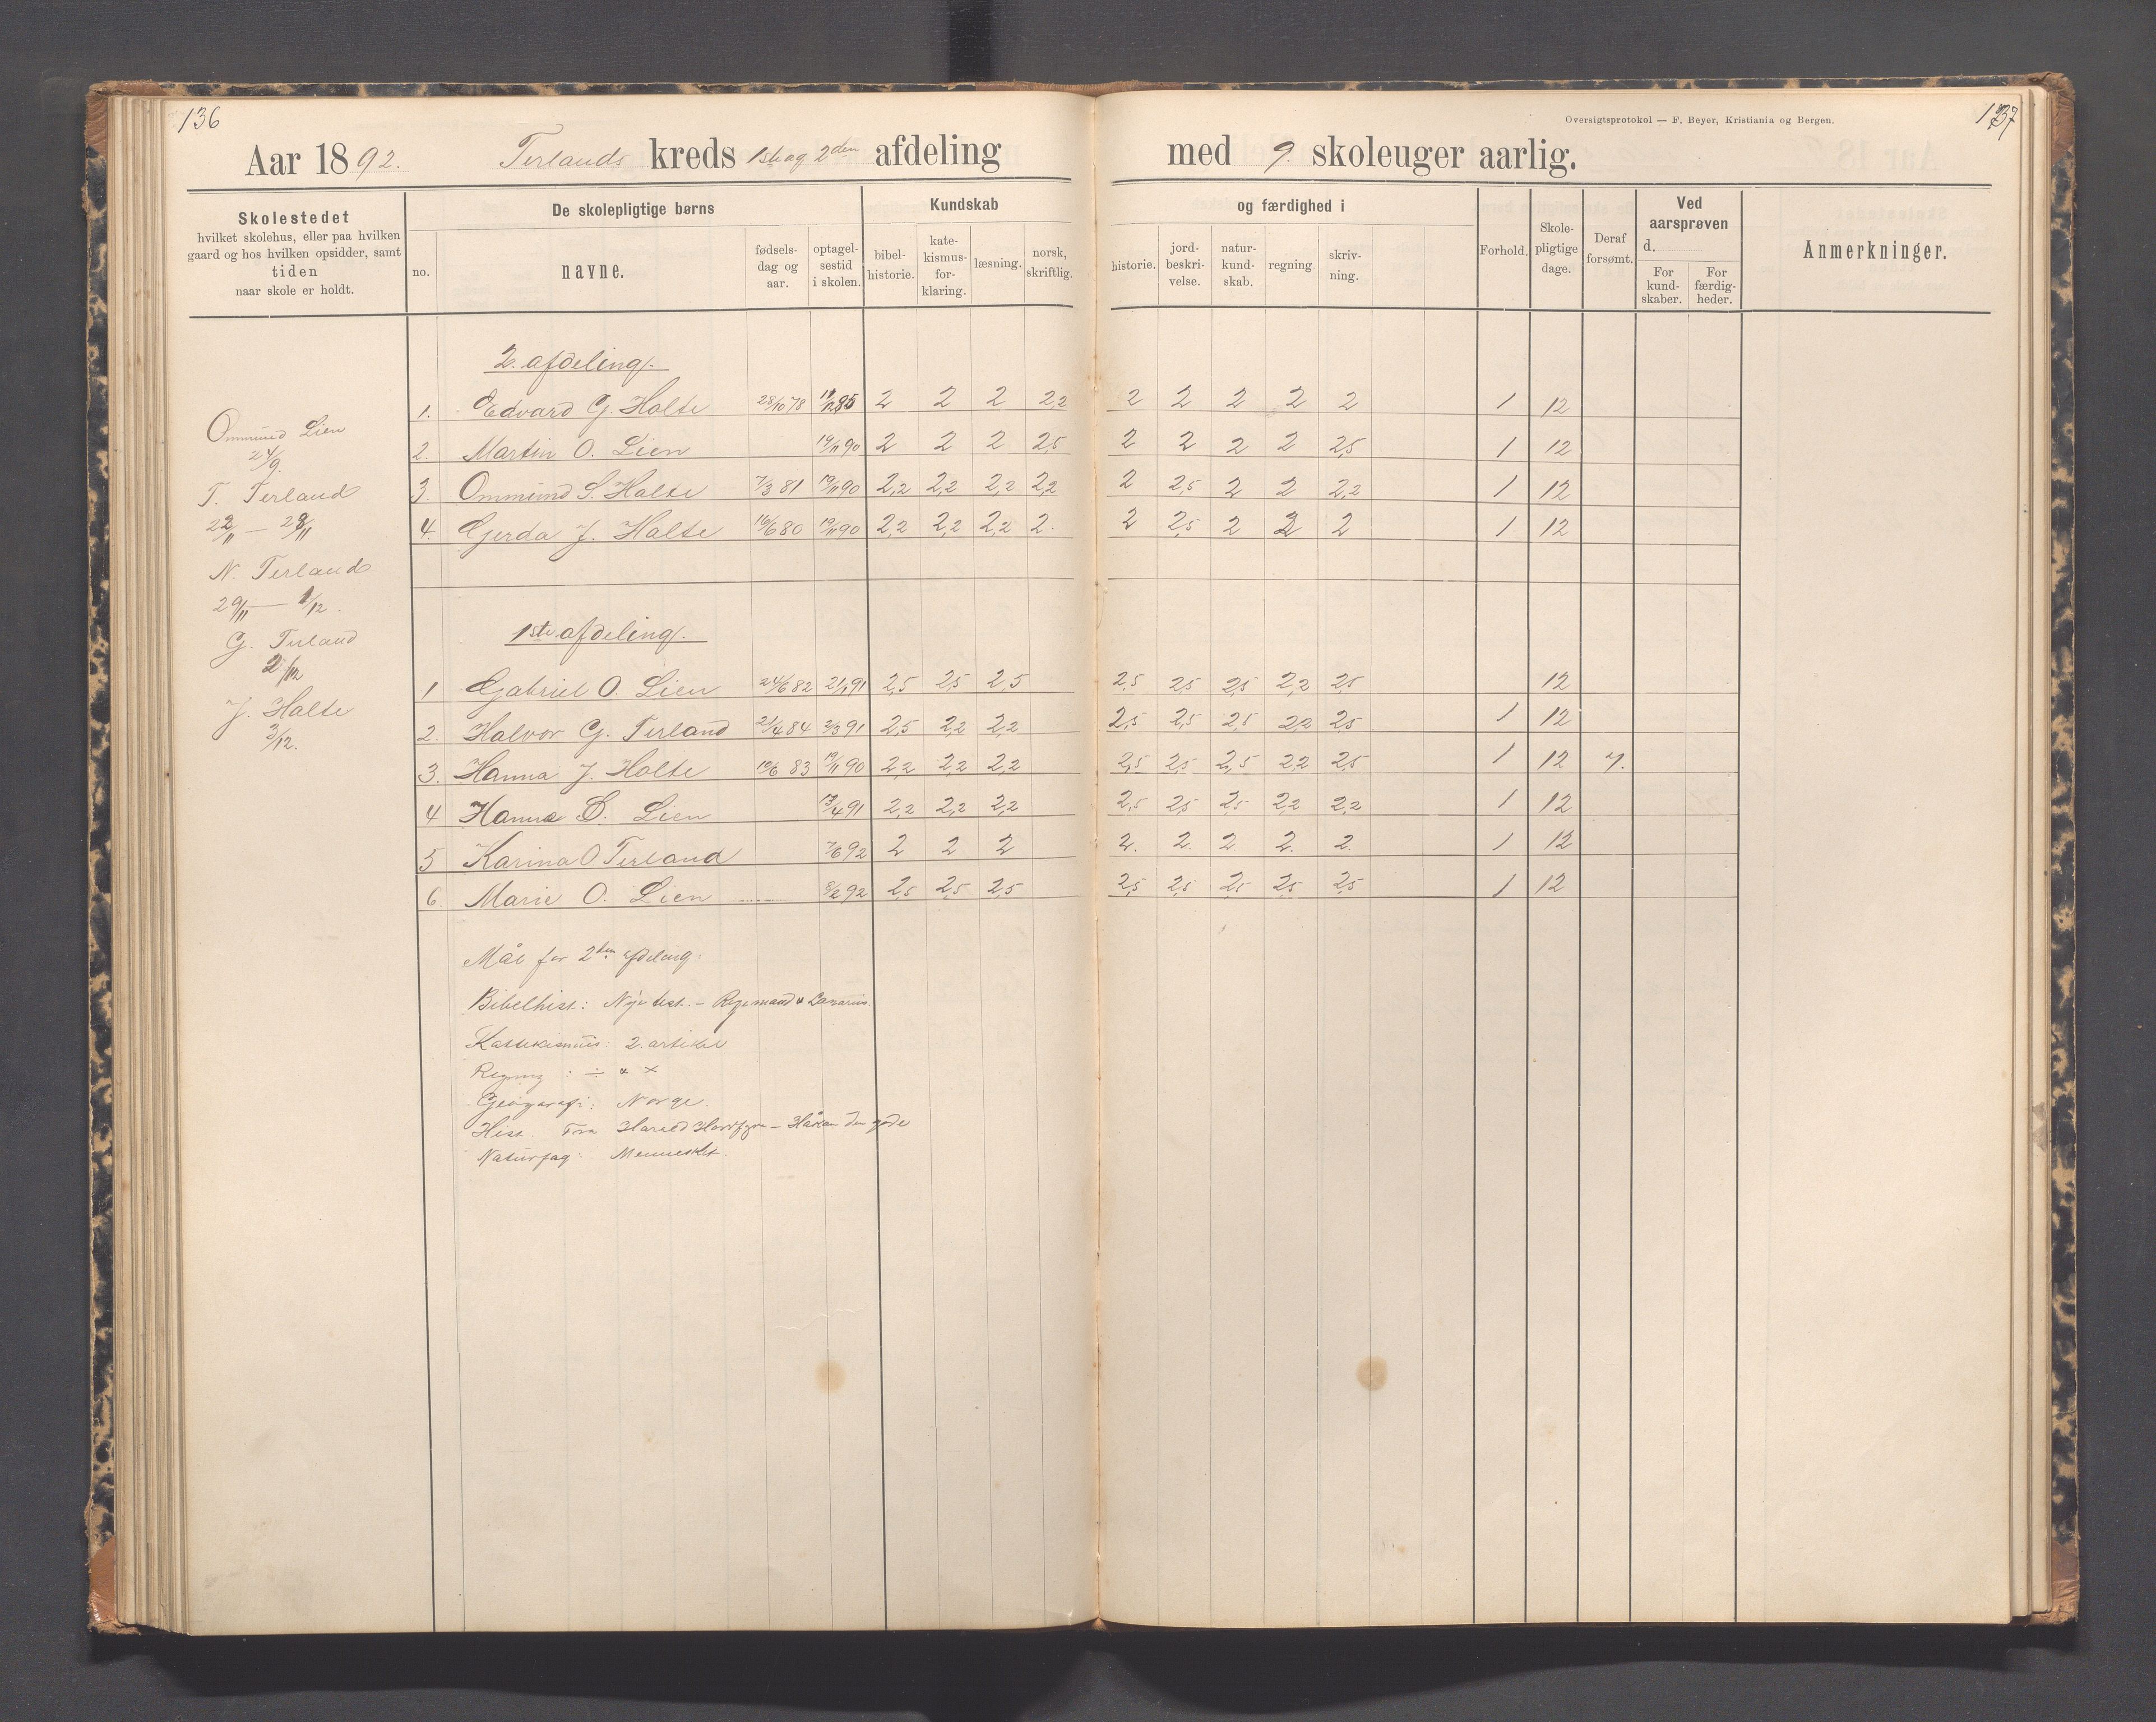 136
137
Oversigtsprotokol — F. Beyer, Kristiania og Bergen.
Aar 1892. Terlands kreds 1ste og 2den afdeling med 9. skoleuger aarlig.
Skolestedet
hvilket skolehus, eller paa hvilken
gaard og hos hvilken opsidder, samt
tiden
naar skole er holdt.
De skolepligtige børns
no.
navne.
fødsels-
dag og
aar.
optagel-
sestid
i skolen.
Kundskab
bibel-
historie.
kate-
kismus-
for-
klaring.
læsning.
norsk,
skriftlig.
og færdighed i
historie.
jord-
beskri-
velse.
natur-
kund-
skab.
regning
skriv-
ning.
Forhold.
Skole-
pligtige
dage.
Deraf
forsømt.
Ved
aarsprøven
d.
For
kund-
skaber.
For
færdig-
heder.
Anmerkninger.
Ommund Lien
24/9.
T. Terland
22/11 — 28/11
N. Terland
29/11 — 1/12.
G. Terland
2/12
J. Halte
3/12.
2. afdeling.
1. Edvard G. Holte 28/10 78 85 2 2 2 2,2 2 2 2 2 2 1 12
2. Martin O. Lien 19/11 90 2 2 2 2,5 2 2 2 2 2,5 1 12
3. Ommund S. Halte 7/3 81 19/11 90 2,2 2,2 2,2 2,2 2 2,5 2 2 2,2 1 12
4. Gerda J. Halte 16/6 80 19/11 90 2,2 2,2 2,2 2. 2 2,5 2 2 2 1 12
1ste afdeling.
1 Gabriel O. Lien 24/6 82 2/1 91 2,5 2,5 2,5 2,5 2,5 2,5 2,2 2,5 12
2. Halvor G. Terland 21/4 84 2/3 91 2,5 2,2 2,2 2,5 2,5 2,5 2,2 2,5 1 12
3. Hanna J. Holte 10/6 83 19/11 90 2,2 2,2 2,2 2,5 2,5 2,5 2,2 2,5 1 12 7.
4 Hanna Lien 13/4 91 2,2 2,2 2,2 2,5 2,5 2,5 2,2 2,2 1 12
5 Karina O Terland 7/6 92 2 2 2 2. 2. 2. 2. 2. 1 12
6. Marie O. Lien 8/2 92 2,5 2,5 2,5 2,5 2,5 2,5 2,5 2,5 1 12
Mål for 2den afdeling.
Bibelhist: Nye test. – Rigemand & Lazarus.
Kattekismus: 2. artikel
Regning : ÷ & ×
Geografi: Norge.
Hist. Fra Harald Hårfgre – Håkon den gode
Naturfag: Mennesket.